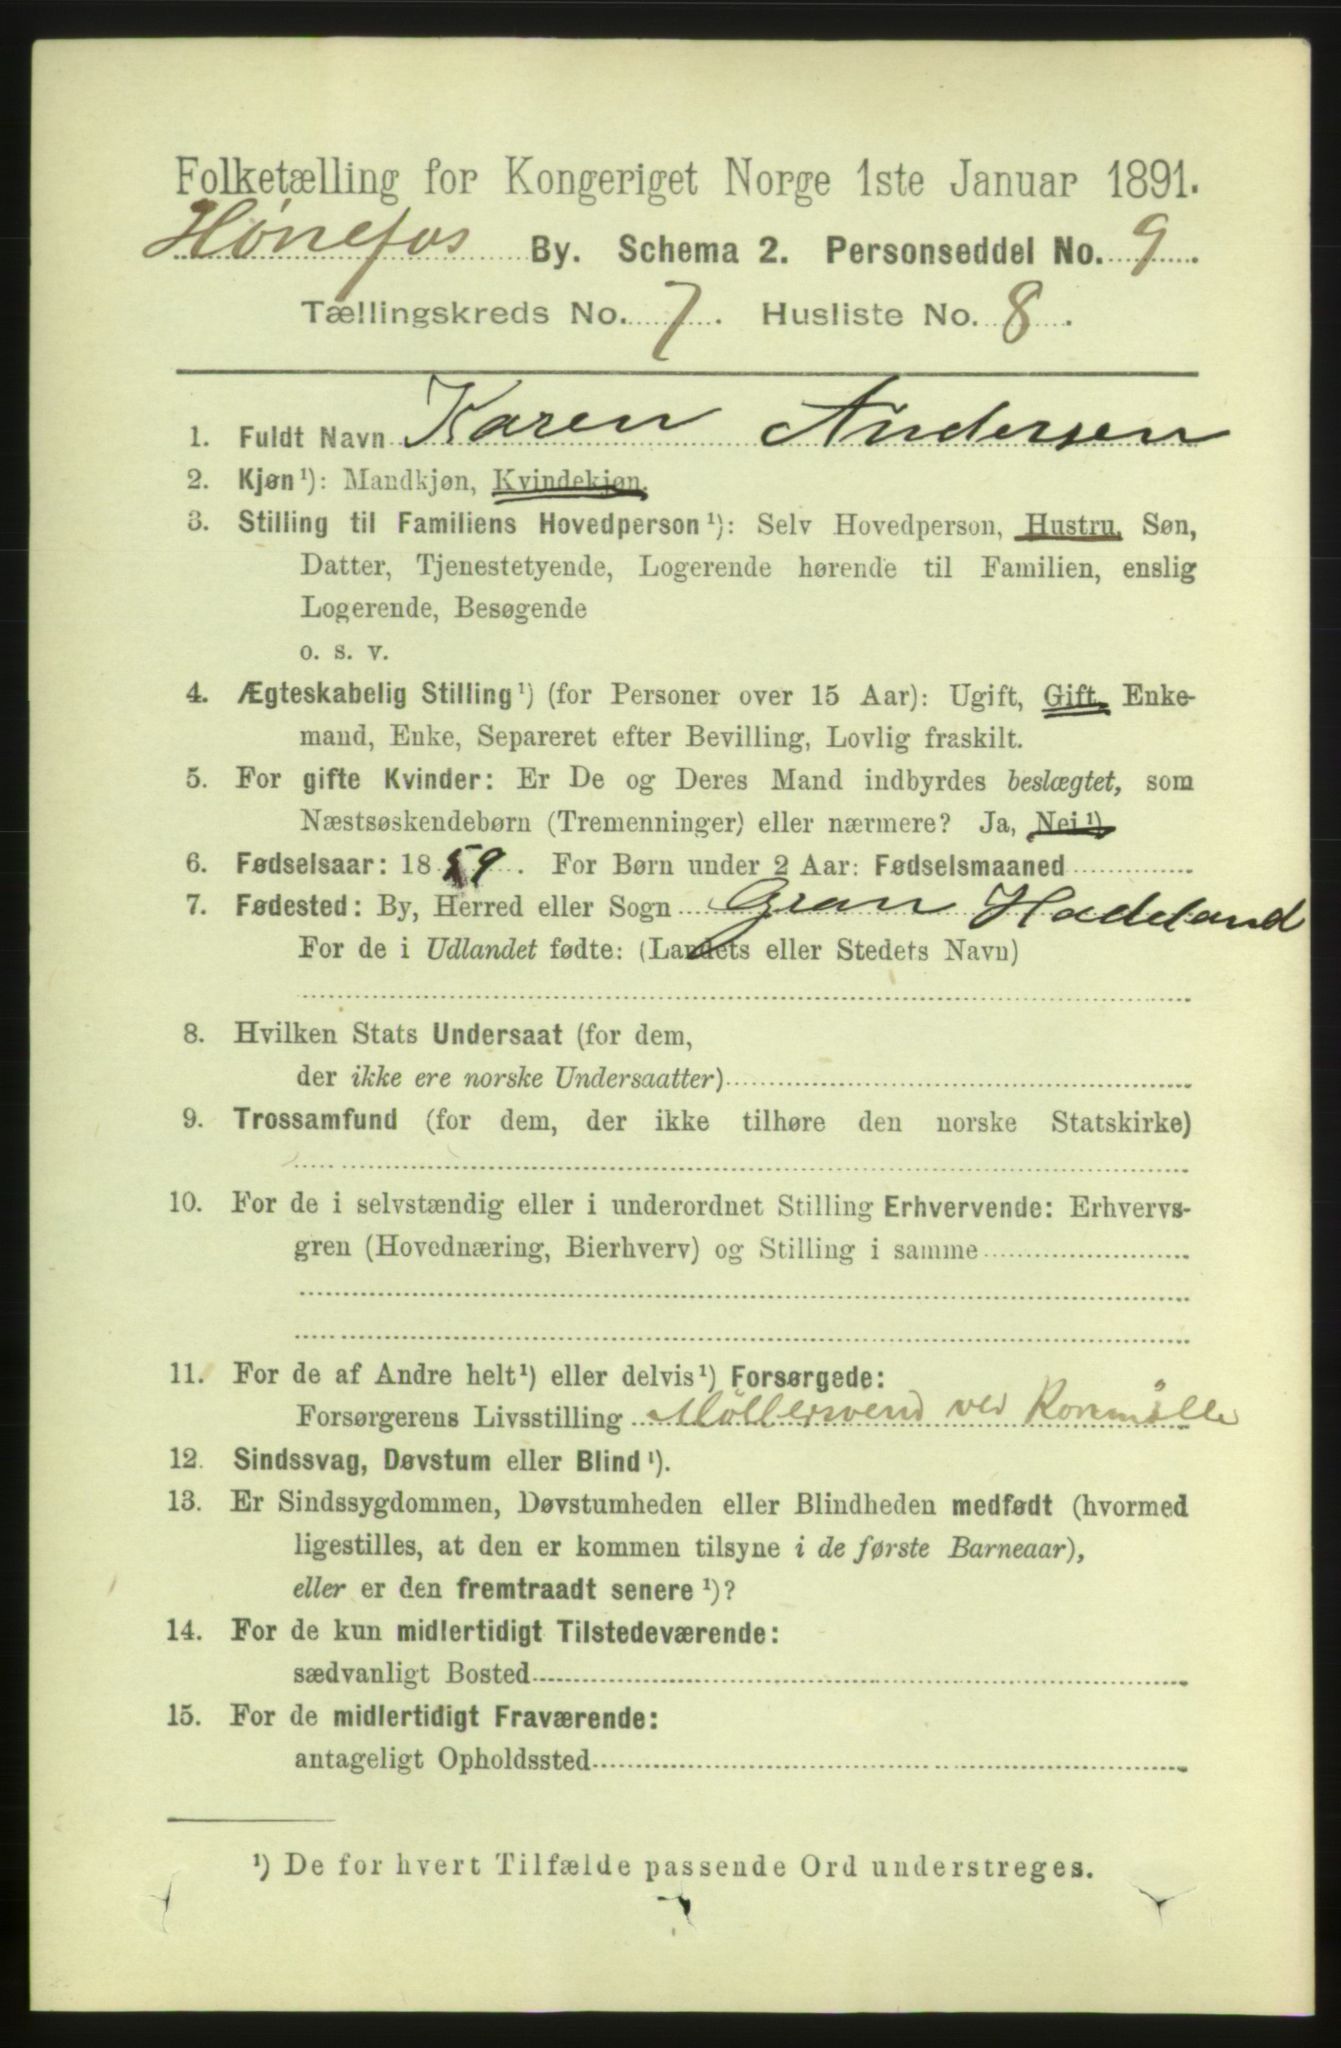 Folketælling for Kongeriget Norge 1ste Januar 1891.
Hönefos By. Schema 2. Personseddel No. 9.
Tællingskreds No. 7. Husliste No. 8.
1. Fuldt Navn Karen Andersen
2. Kjøn ¹): Mandkjøn, Kvindekjøn.
3. Stilling til Familiens Hovedperson ¹): Selv Hovedperson, Hustru, Søn,
Datter, Tjenestetyende, Logerende hørende til Familien, enslig
Logerende, Besøgende
o. s. v.
4. Ægteskabelig Stilling ¹) (for Personer over 15 Aar): Ugift, Gift, Enke-
mand, Enke, Separeret efter Bevilling, Lovlig fraskilt.
5. For gifte Kvinder: Er De og Deres Mand indbyrdes beslægtet, som
Næstsøskendebørn (Tremenninger) eller nærmere? Ja, Nei ¹)
6. Fødselsaar: 1859. For Børn under 2 Aar: Fødselsmaaned
7. Fødested: By, Herred eller Sogn Gran Hadeland
For de i Udlandet fødte: (Landets eller Stedets Navn)
8. Hvilken Stats Undersaat (for dem,
der ikke ere norske Undersaatter)
9. Trossamfund (for dem, der ikke tilhøre den norske Statskirke)
10. For de i selvstændig eller i underordnet Stilling Erhvervende: Erhvervs-
gren (Hovednæring, Bierhverv) og Stilling i samme
11. For de af Andre helt ¹) eller delvis ¹) Forsørgede:
Forsørgerens Livsstilling Möllersvend ved Kornmölle
12. Sindssvag, Døvstum eller Blind ¹).
13. Er Sindssygdommen, Døvstumheden eller Blindheden medfødt (hvormed
ligestilles, at den er kommen tilsyne i de første Barneaar),
eller er den fremtraadt senere ¹)?
14. For de kun midlertidigt Tilstedeværende:
sædvanligt Bosted
15. For de midlertidigt Fraværende:
antageligt Opholdssted
¹) De for hvert Tilfælde passende Ord understreges.